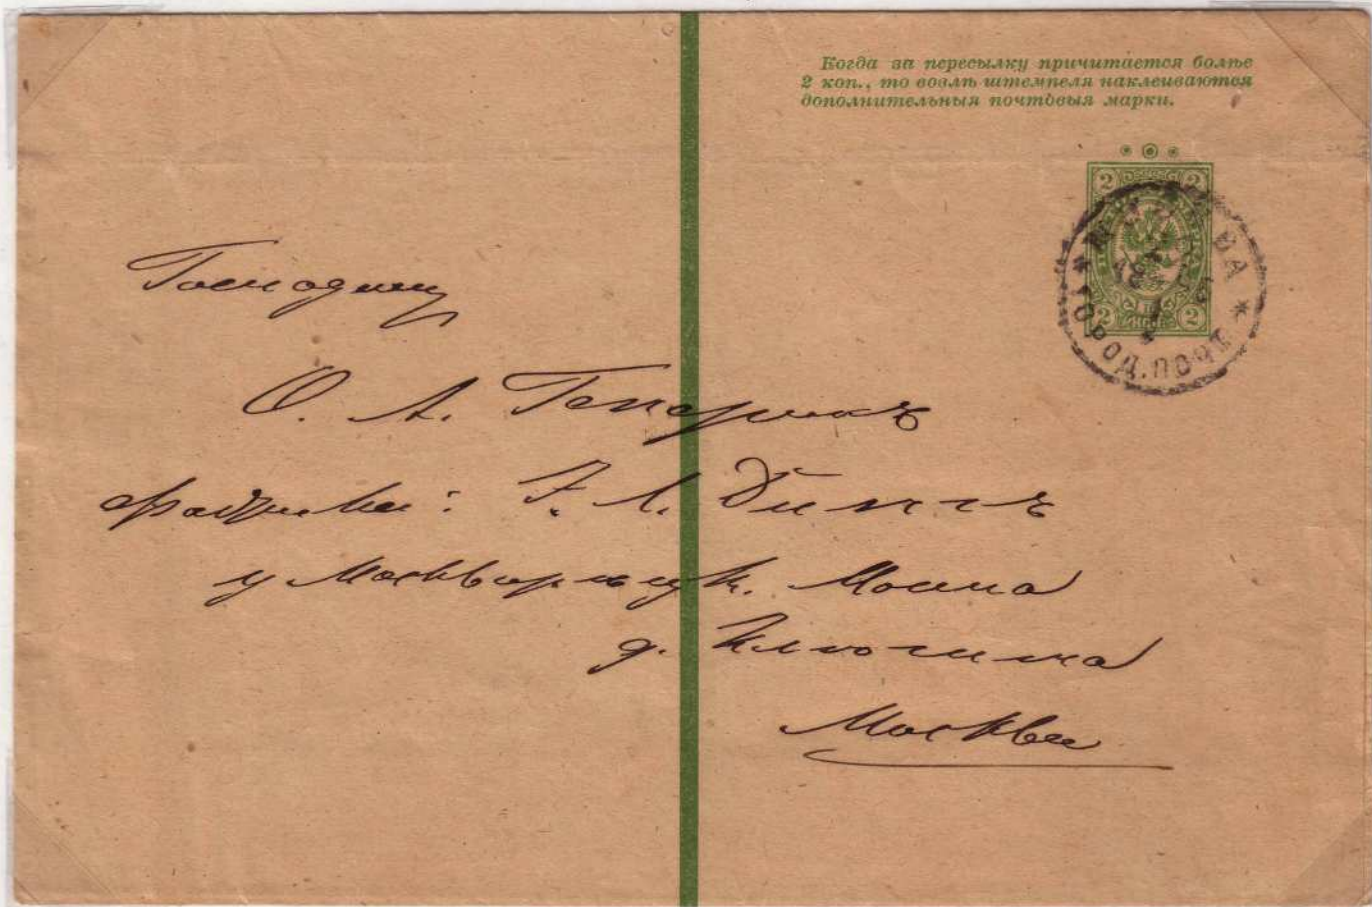 Когда за пересылку причитается болѣе
2 коп., то возлѣ штемпеля наклеиваются
дополнительныя почтовыя марки.
2 2
МОСКВА
2 2
ГОРОД. ПОЧТ.
Господину
О. А.
Фабрика: Э. А. Дингъ
у Москворецк. Моста
д.
Москва